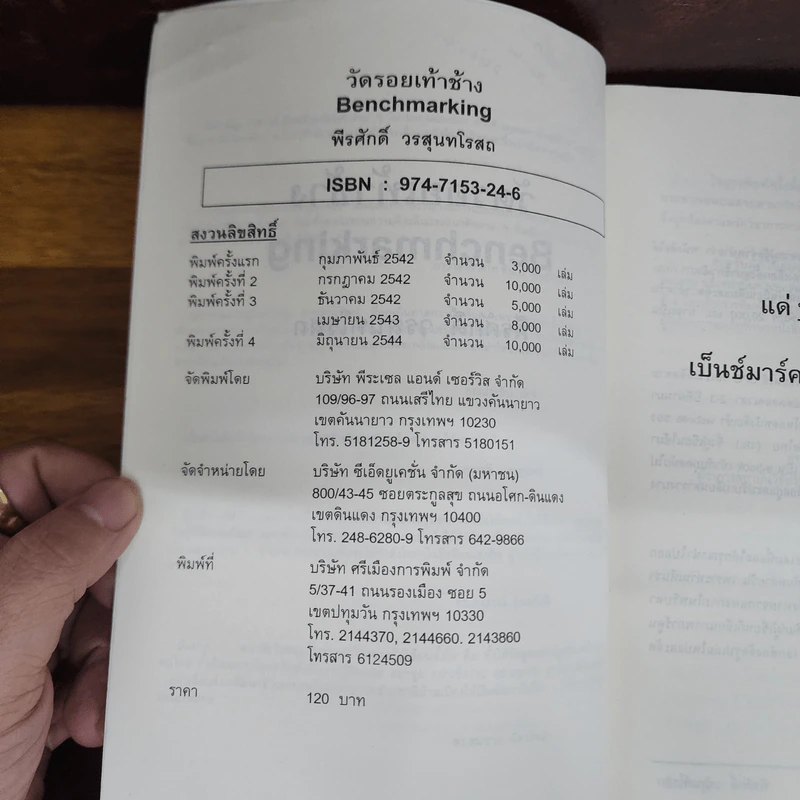 วัดรอยเท้าช้าง
Benchmarking
พีรศักดิ์ วรสุนทโรสถ
ISBN : 974-7153-24-6
สงวนลิขสิทธิ์
พิมพ์ครั้งแรก กุมภาพันธ์ 2542 จำนวน 3,000 เล่ม
พิมพ์ครั้งที่ 2 กรกฎาคม 2542 จำนวน 10,000 เล่ม
พิมพ์ครั้งที่ 3 ธันวาคม 2542 จำนวน 5,000 เล่ม
เมษายน 2543 จำนวน 8,000 เล่ม
พิมพ์ครั้งที่ 4 มิถุนายน 2544 จำนวน 10,000 เล่ม
จัดพิมพ์โดย บริษัท พีระเซล แอนด์ เซอร์วิส จำกัด
109/96-97 ถนนเสรีไทย แขวงคันนายาว
เขตคันนายาว กรุงเทพฯ 10230
โทร. 5181258-9 โทรสาร 5180151
จัดจำหน่ายโดย บริษัท ซีเอ็ดยูเคชั่น จำกัด (มหาชน)
800/43-45 ซอยตระกูลสุข ถนนอโศก-ดินแดง
เขตดินแดง กรุงเทพฯ 10400
โทร. 248-6280-9 โทรสาร 642-9866
พิมพ์ที่ บริษัท ศรีเมืองการพิมพ์ จำกัด
5/37-41 ถนนรองเมือง ซอย 5
เขตปทุมวัน กรุงเทพฯ 10330
โทร. 2144370, 2144660. 2143860
โทรสาร 6124509
ราคา 120 บาท
แด่
เบ็นช์มาร์ค